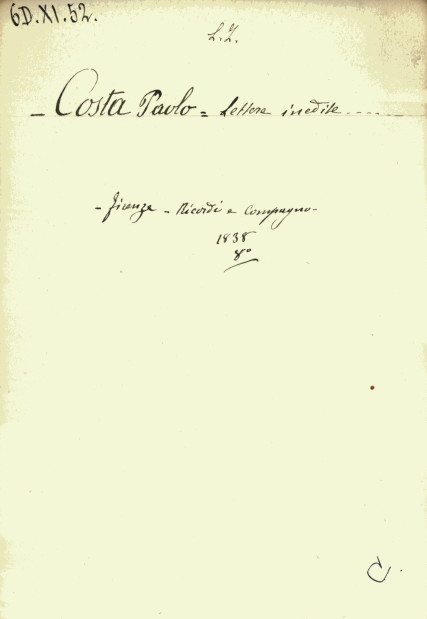 6D.XI.52.
L.I.
- Costa Paolo = Lettere inedite.....
- Firenze - Ricordi e Compagno -
1838
8°
C.